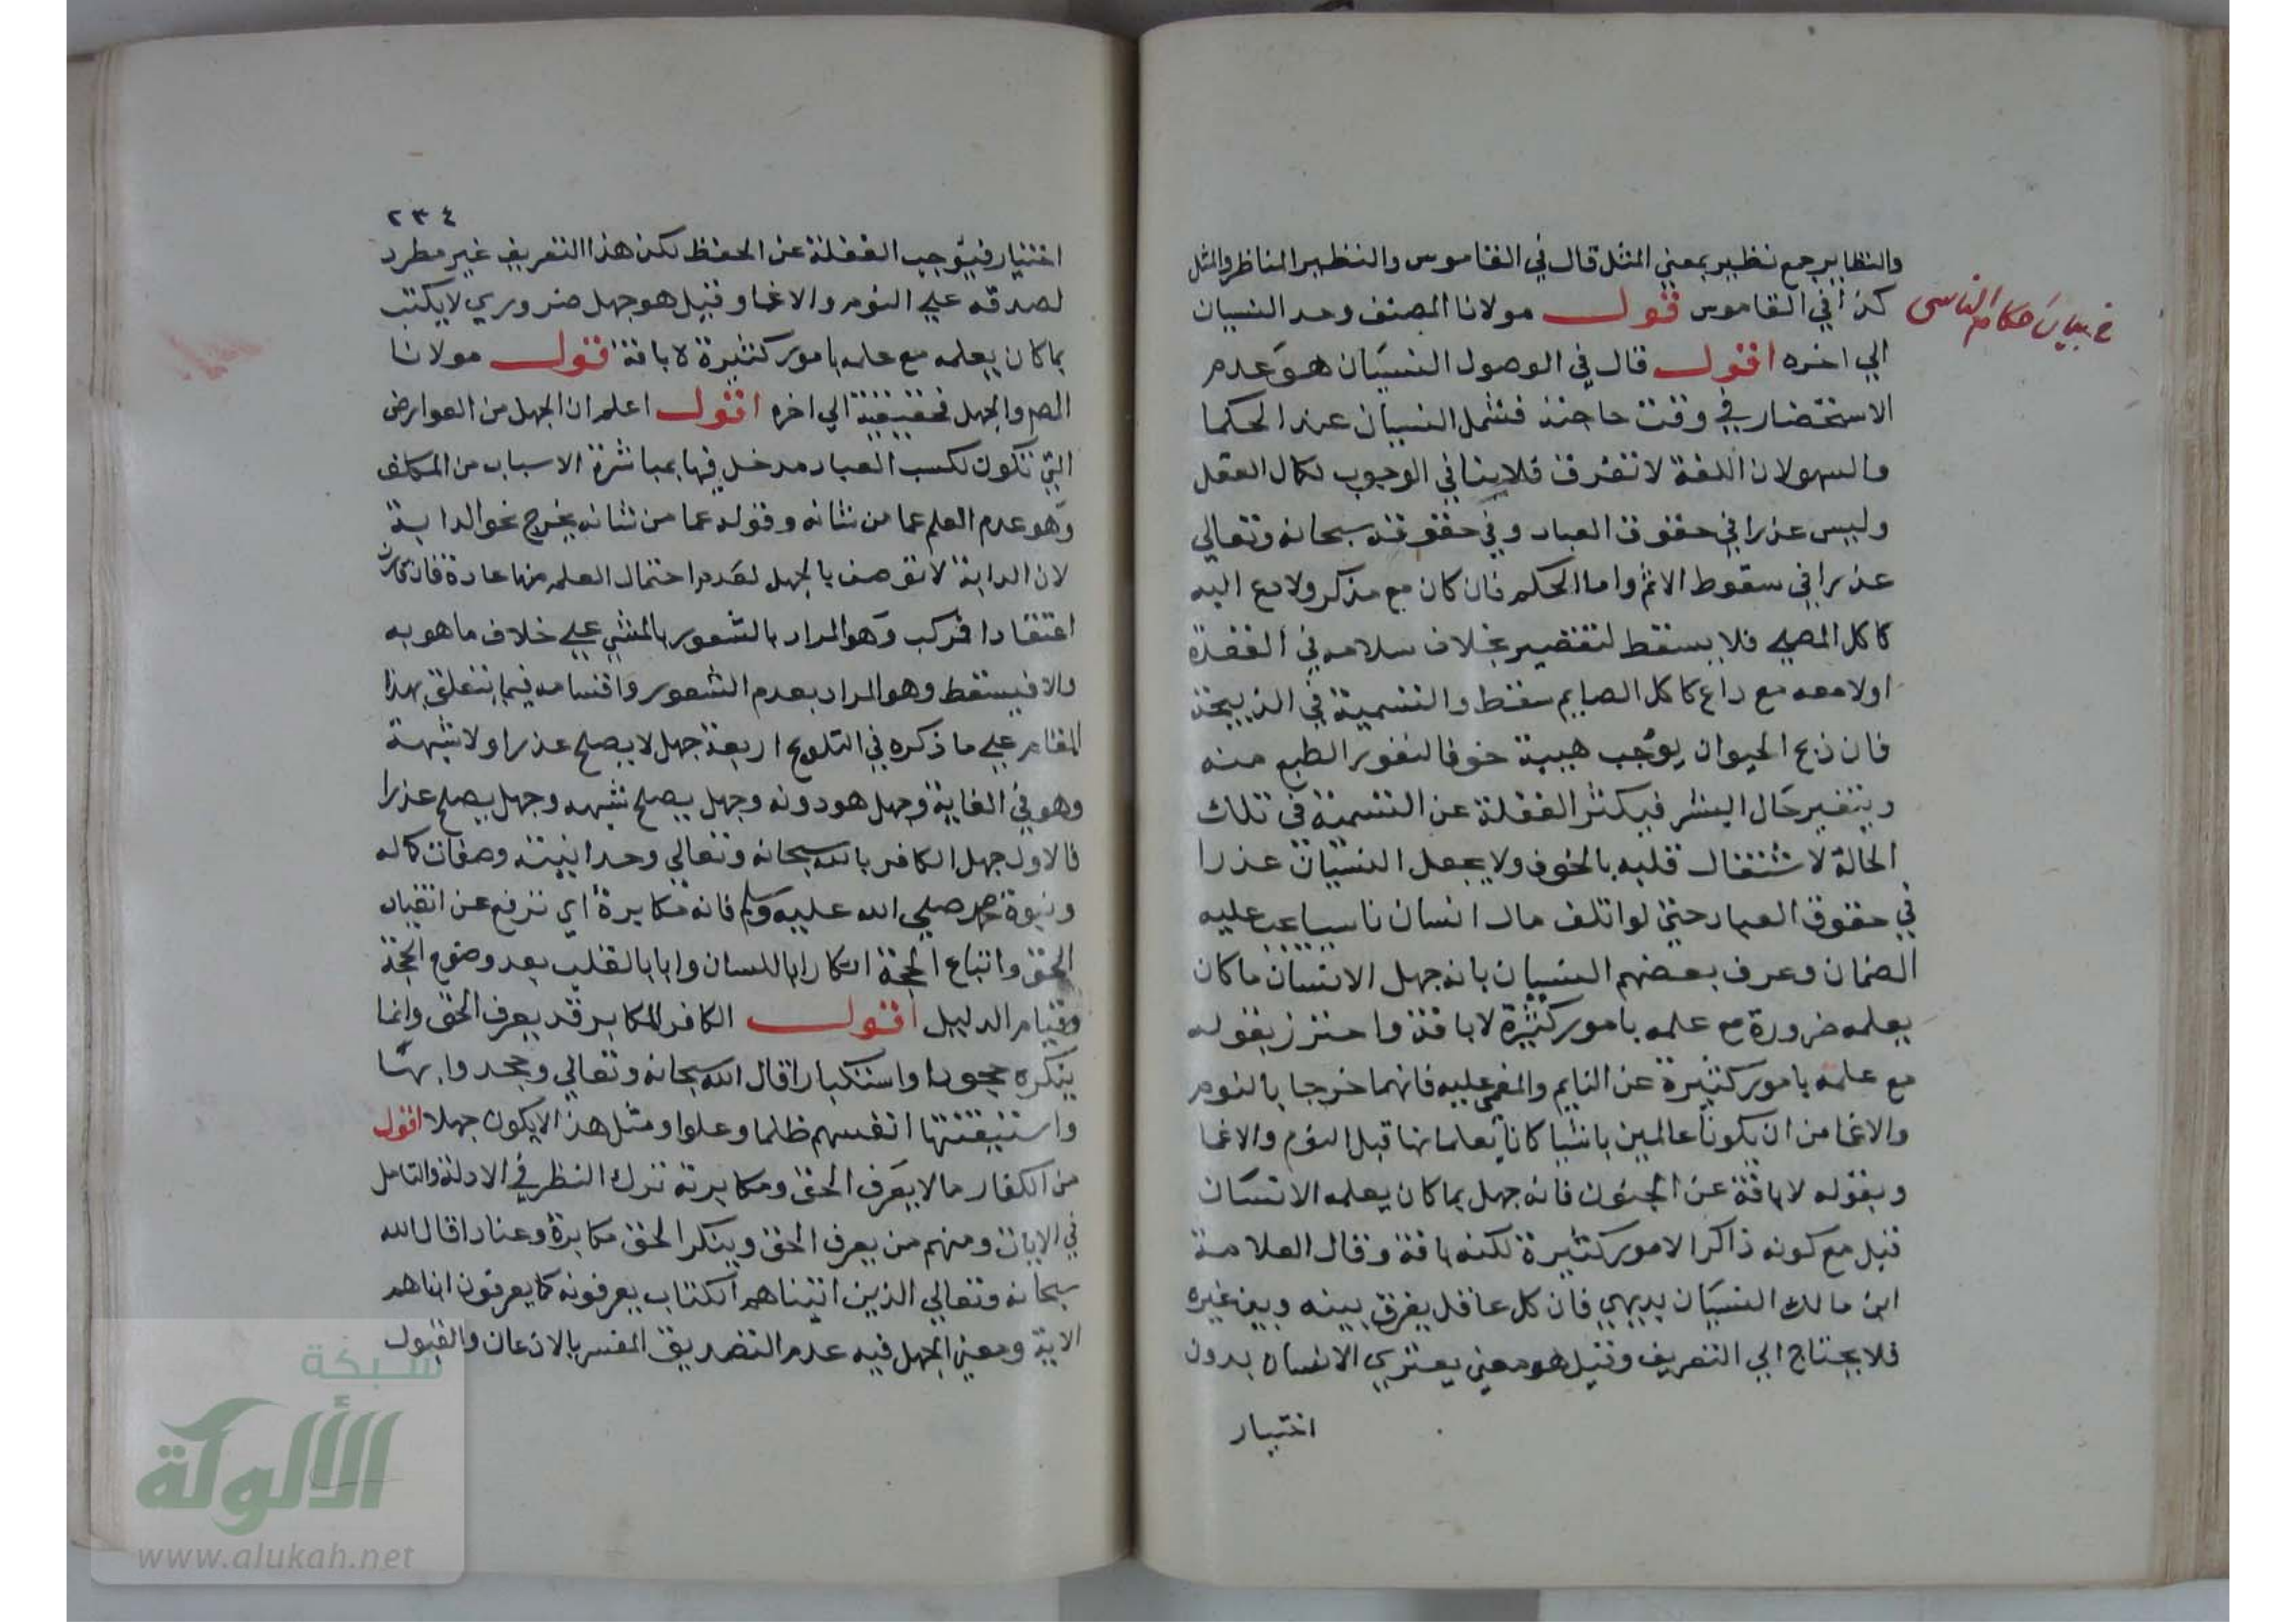 والنظاير جمع نظير بمعني المثل قال في القاموس والنظير المناظر والمثل
كذا في القاموس قول مولانا المصنف وحد النسيان
في بيان احكام الناسي
الي اخره اقول قال في الوصول النسيان هو عدم
الاستحضار في وقت حاجته فشمل النسيان عند الحكما
والسهو لان اللغة لا تفرق فلا ينافي الوجوب لكمال العقل
وليس عذرا في حقوق العباد وفي حقوقه سبحانه وتعالي
عذرا في سقوط الاثم واما الحكم فان كان مع مذكر ولا دع اليه
كاكل المصلي فلا يسقط لتقصير بخلاف سلامه في القعدة
اولا معه مع داع كاكل الصايم سقط والتسمية في الذبيحة
فان ذبح الحيوان يوجب هيبة خوفا لنفور الطبع منه
ويتغير حال البشر فيكثر الغفلة عن التسمية في تلك
الحالة لاشتغال قلبه بالخوف ولا يجعل النسيان عذرا
في حقوق العباد حتي لو اتلف مال انسان ناسيا يجب عليه
الضمان وعرف بعضهم النسيان بانه جهل الانسان ما كان
يعلمه ضرورة مع علمه بامور كثيرة لا بافة واحترز بقوله
مع علمه بامور كثيرة عن النايم والمغمي عليه فانهما خرجا بالنوم
والاغما من ان يكونا عالمين باشيا كانا يعلمانها قبل النوم والاغما
وبقوله لا بافة عن الجنون فانه جهل بما كان يعلمه الانسان
قبل مع كونه ذاكرا لامور كثيرة لكنه بافة وقال العلامة
ابن مالك النسيان بديهي فان كل عاقل يفرق بينه وبين غيره
فلا يحتاج الي التعريف وقيل هو معني يعتري الانسان بدون
اختيار
٢٣٤
اختيار فيوجب الغفلة عن الحفظ لكن هذا التعريف غير مطرد
لصدقه علي النوم والاغما وقيل هو جهل ضروري لا يكتب
بما كان يعلمه مع علمه بامور كثيرة لا بافة قول مولانا
المص والجهل فحقيقة الي اخره اقول اعلم ان الجهل من العوارض
التي تكون لكسب العباد مدخل فيها بمباشرة الاسباب من المكلف
وهو عدم العلم عما من شانه وقوله عما من شانه يخرج نحو الدابة
لان الدابة لا توصف بالجهل لعدم احتمال العلم منها عادة فان قارن
اعتقادا فمركب وهو المراد بالشعور بالشي علي خلاف ما هو به
والا فبسيط وهو المراد بعدم الشعور واقسامه فيما يتعلق بهذا
المقام علي ما ذكره في التلويح اربعة جهل لا يصلح عذرا ولا شبهة
وهو في الغاية وجهل هو دونه وجهل يصلح شبهه وجهل يصلح عذرا
فالاول جهل الكافر بالله سبحانه وتعالي وحدانيته وصفات كماله
ونبوة محمد صلي الله عليه وسلم فانه مكابرة اي ترفع عن انقياد
الحق واتباع الحجة انكارا باللسان وابا بالقلب بعد وضوح الحجة
وقيام الدليل اقول الكافر المكابر قد يعرف الحق وانما
ينكره جحودا واستكبارا قال الله سبحانه وتعالي وجحدوا بها
واستيقنتها انفسهم ظلما وعلوا ومثل هذا لا يكون جهلا اقول
من الكفار ما لا يعرف الحق ومكابرته ترك النظر في الادلة والتامل
في الايات ومنهم من يعرف الحق وينكر الحق مكابرة وعنادا قال الله
سبحانه وتعالي الذين اتيناهم الكتاب يعرفونه كما يعرفون ابناهم
الاية ومعني الجهل فيه عدم التصديق المفسر بالاذعان والقبول
شبكة
الألوكة
www.alukah.net